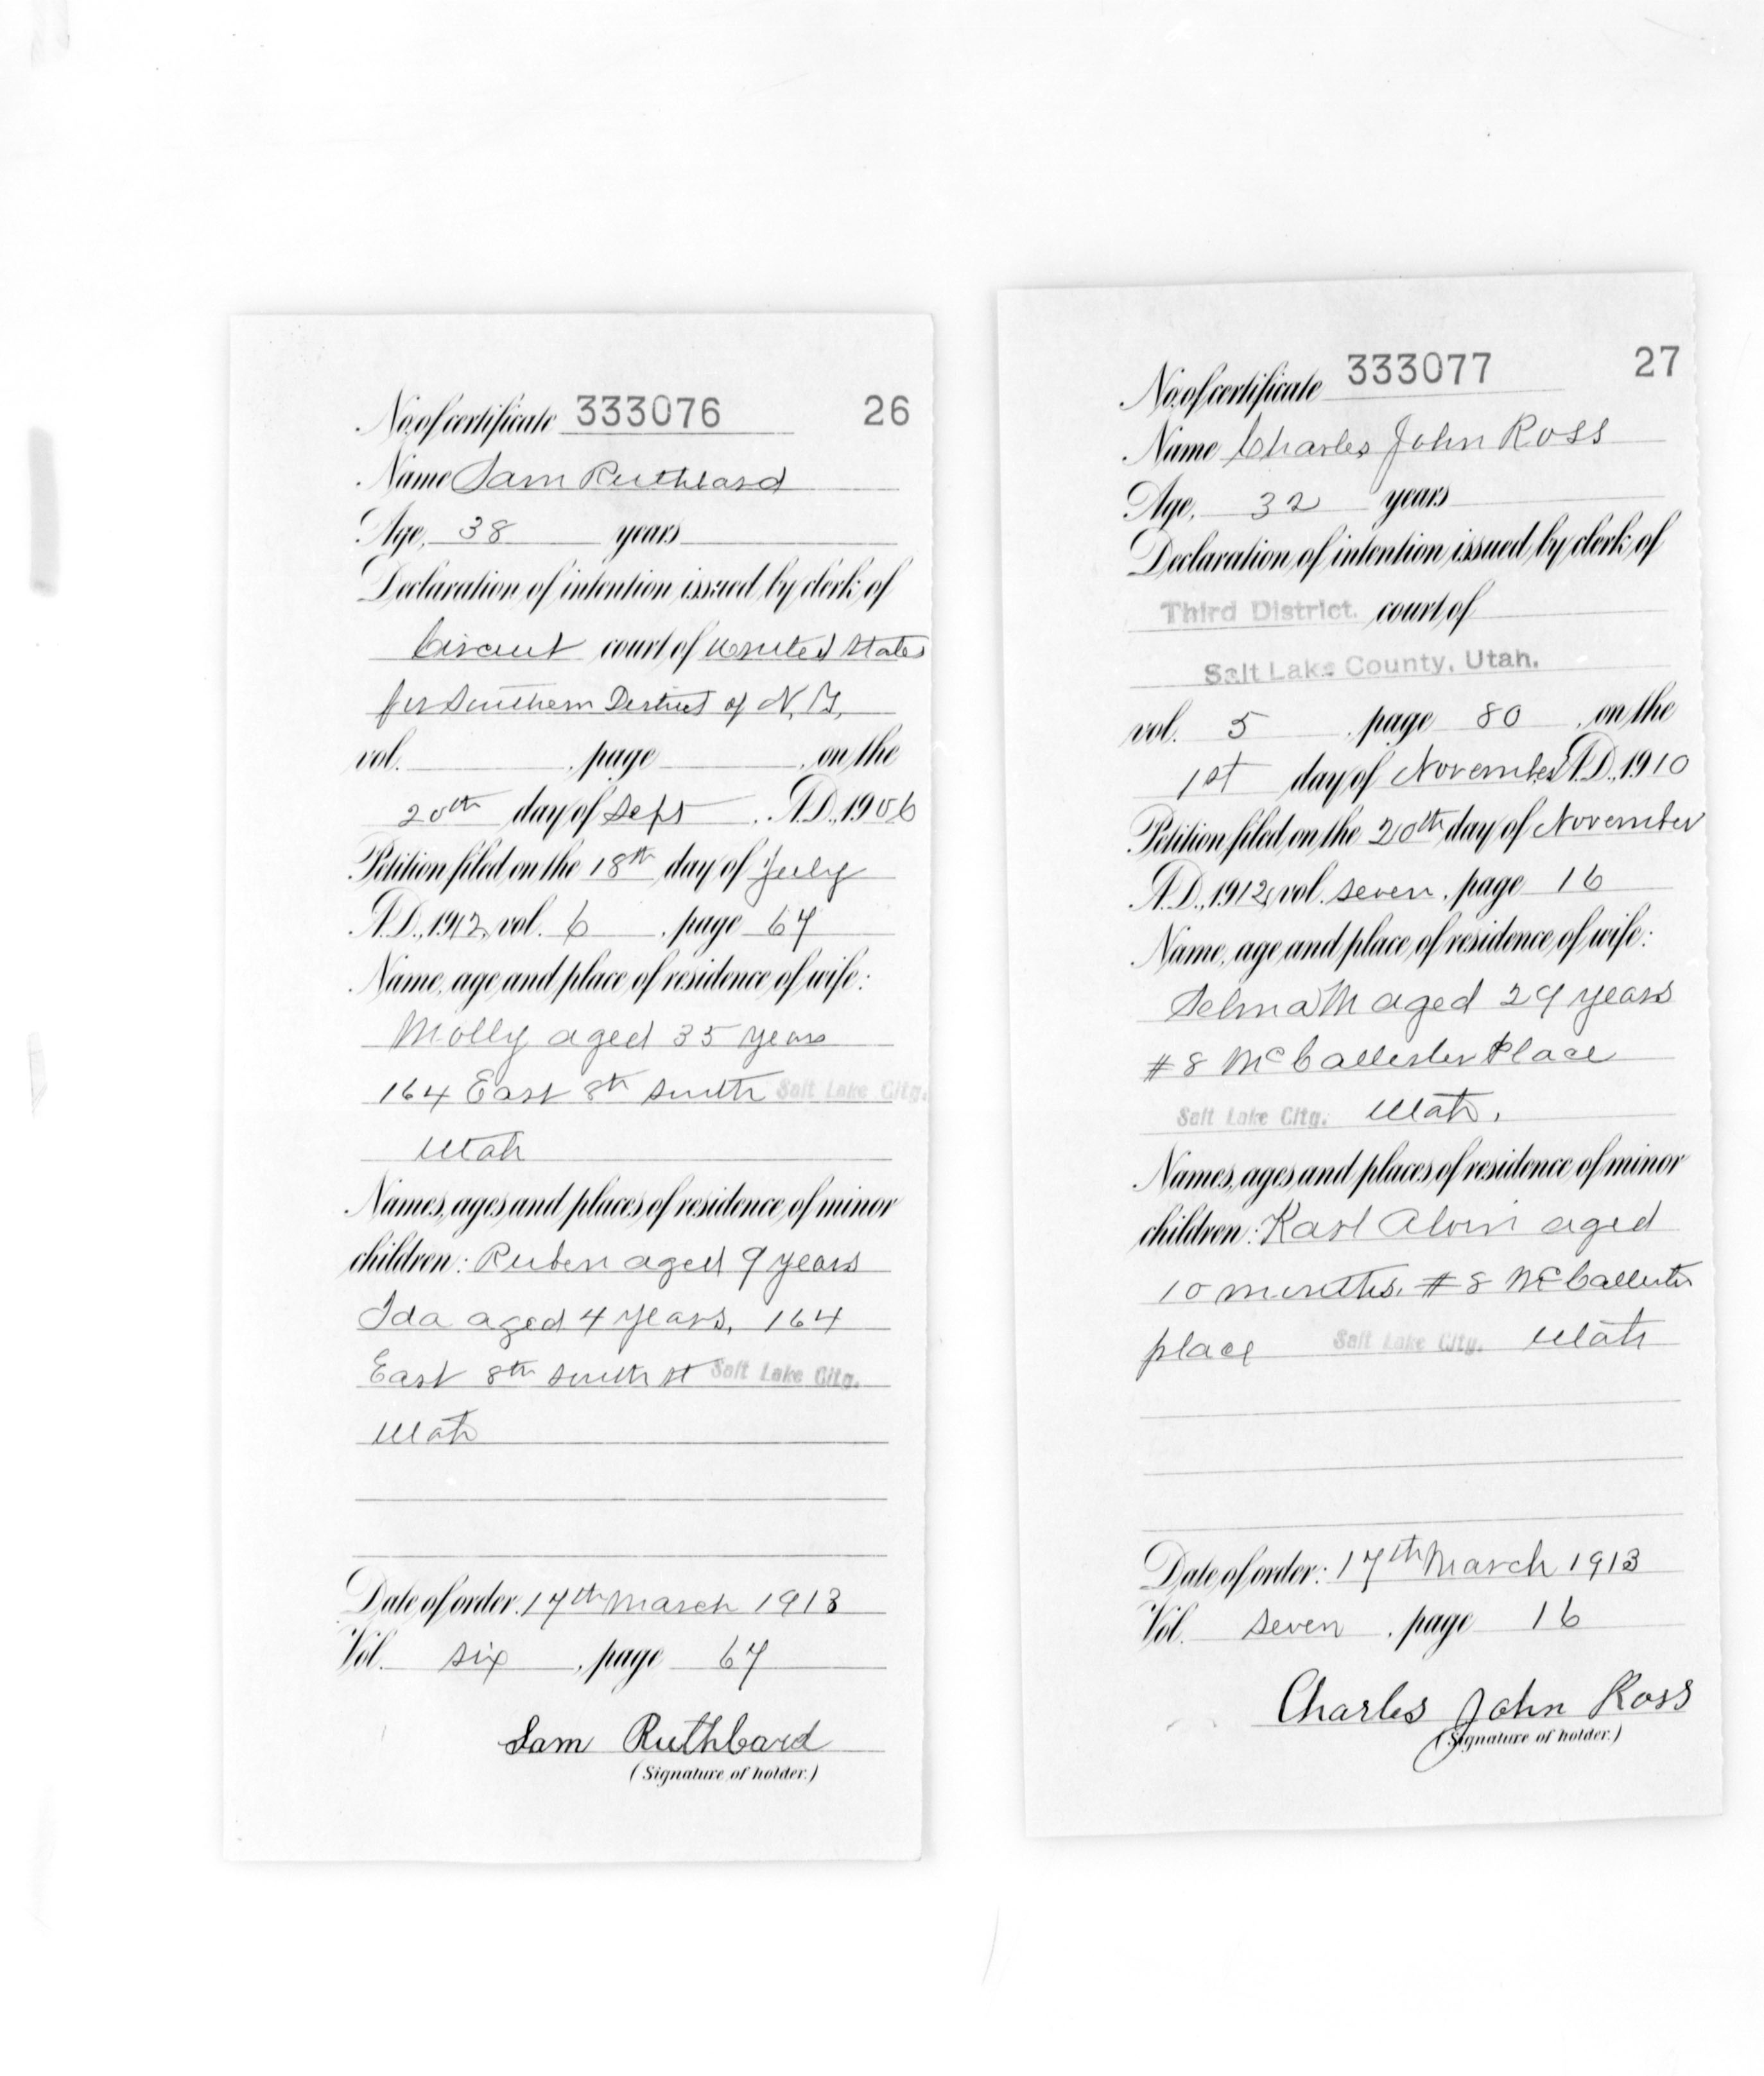 No. of certificate 333076 26
Name Sam Ruthbard
Age, 38 years
Declaration of intention issued by clerk of
Circuit court of United States
for Southern District of N.Y.
vol. , page , on the
20th day of Sept , A.D., 1906
Petition filed on the 18th day of July
A.D., 1912, vol. 6 , page 67
Name, age and place of residence of wife:
Molly aged 35 years
164 East 8th South Salt Lake City.
Utah
Names, ages and places of residence of minor
children: Ruben aged 9 years
Ida aged 4 years, 164
East 8th South st Salt Lake City.
Utah
Date of order: 17th March 1913
Vol. six , page 67
Sam Ruthbard
(Signature of holder.)
No. of certificate 333077 27
Name Charles John Ross
Age, 32 years
Declaration of intention issued by clerk of
Third District. court of
Salt Lake County, Utah.
vol. 5 , page 80 , on the
1st day of November A.D., 1910
Petition filed on the 20th day of November
A.D., 1912, vol. seven , page 16
Name, age and place of residence of wife:
Selma M aged 29 years
#8 McCallester Place
Salt Lake City. Utah.
Names, ages and places of residence of minor
children: Karl Alvin aged
10 months. #8 McCallester
place Salt Lake City. Utah
Date of order: 17th March 1913
Vol. seven , page 16
Charles John Ross
(Signature of holder.)